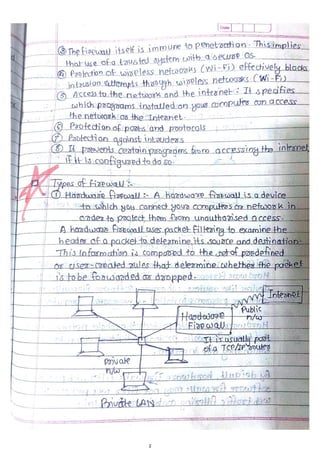 ③ The firewall itself is immune to penetration. This implies
that use of a trusted system with a secure OS.
④ Protection of wireless networks (Wi-Fi) effectively blocks
intrusion attempts through wireless networks (Wi-Fi)
⑤ Access to the network and the intranet : It specifies
which programs installed on your computer can access
the network or the Internet.
⑥ Protection of ports and protocals
⑦ Protection against intruders
⑧ It prevents certain programs from accessing the internet
if it is configured to do so.
Types of firewall :-
① Hardware firewall :- A hardware firewall is a device
to which you connect your computers or network in
order to protect them from unauthorised access.
A hardware firewall uses packet filtering to examine the
header of a packet to determine its source and destination.
This Information is compared to the set of predefined
or user-created rules that determine whether the packet
is to be forwarded or dropped.
Internet
Public
n/w
Hardware
Firewall
It is usually part
of a TCP/IP router
Private
n/w
Private LAN
2